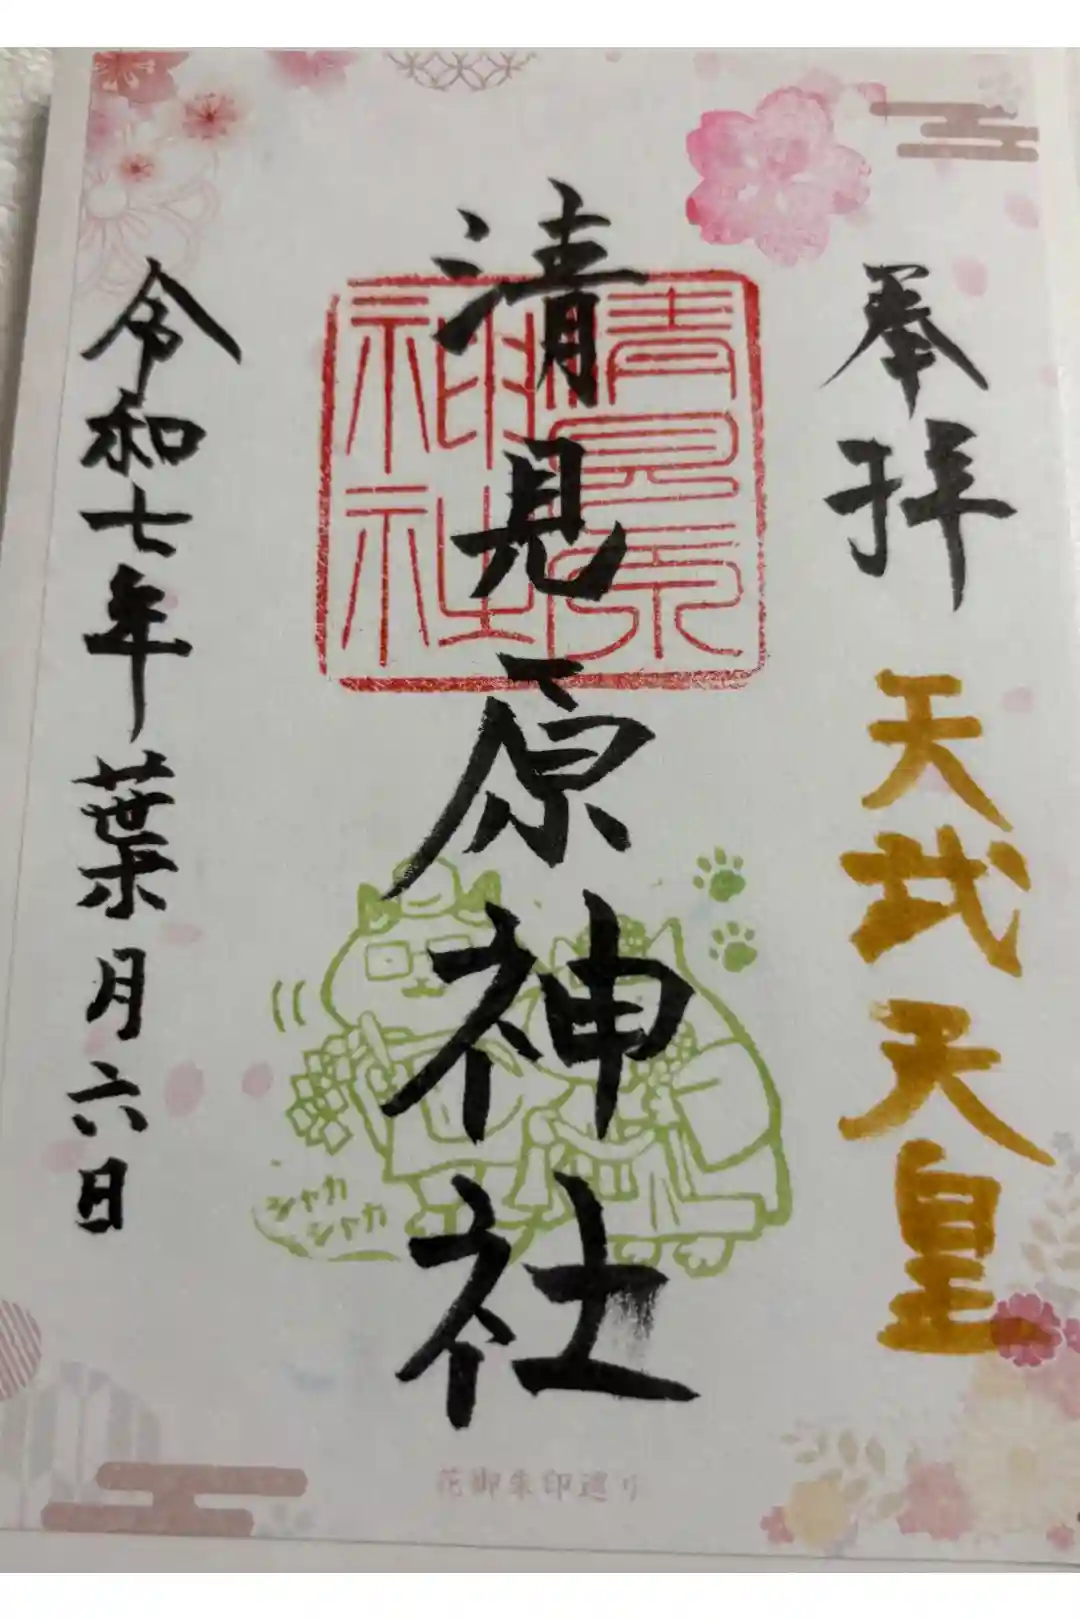 奉拝
天武天皇
清見原神社
清見原
神社
令和七年葉月六日
シャカ
シャカ
花御朱印巡り